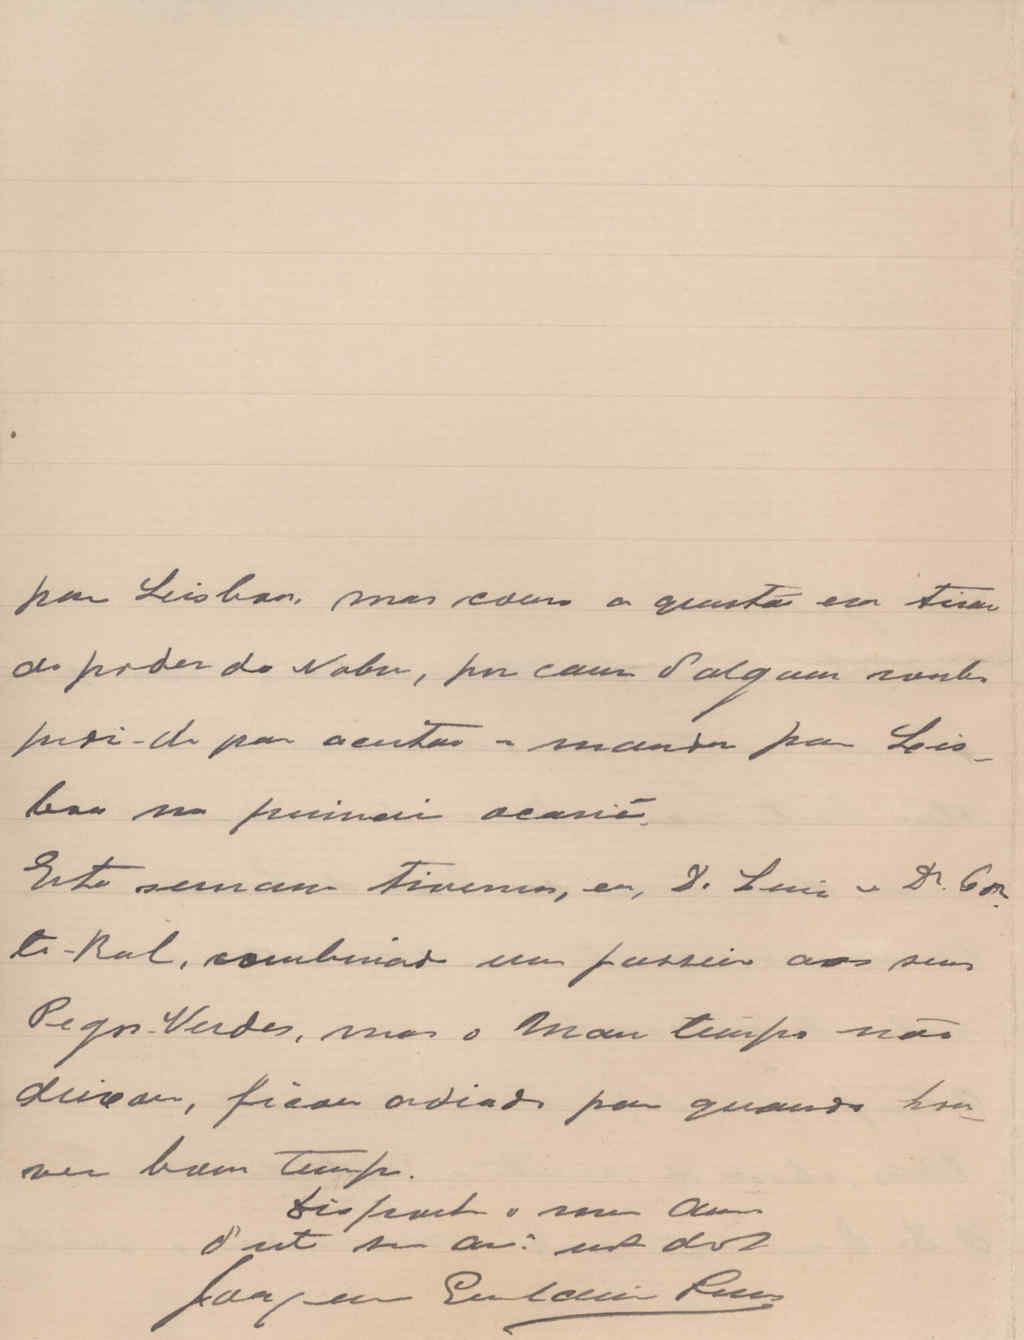 para Lisboa, mas como a questão era tirar
do poder do Nobre, por causa d'algum roubo
pedi-
para acertar e mandar para Lis-
boa na primeira ocasião.
Esta semana tivemos, eu, D. Luiz e Dr. Cor-
te-Real, combinado um passeio aos seus
Pegos-Verdes, mas o mau tempo não
deixou, ficou adiado para quando hou-
ver bom tempo.
Disponha o meu Amº
d'este seu
Joaquim